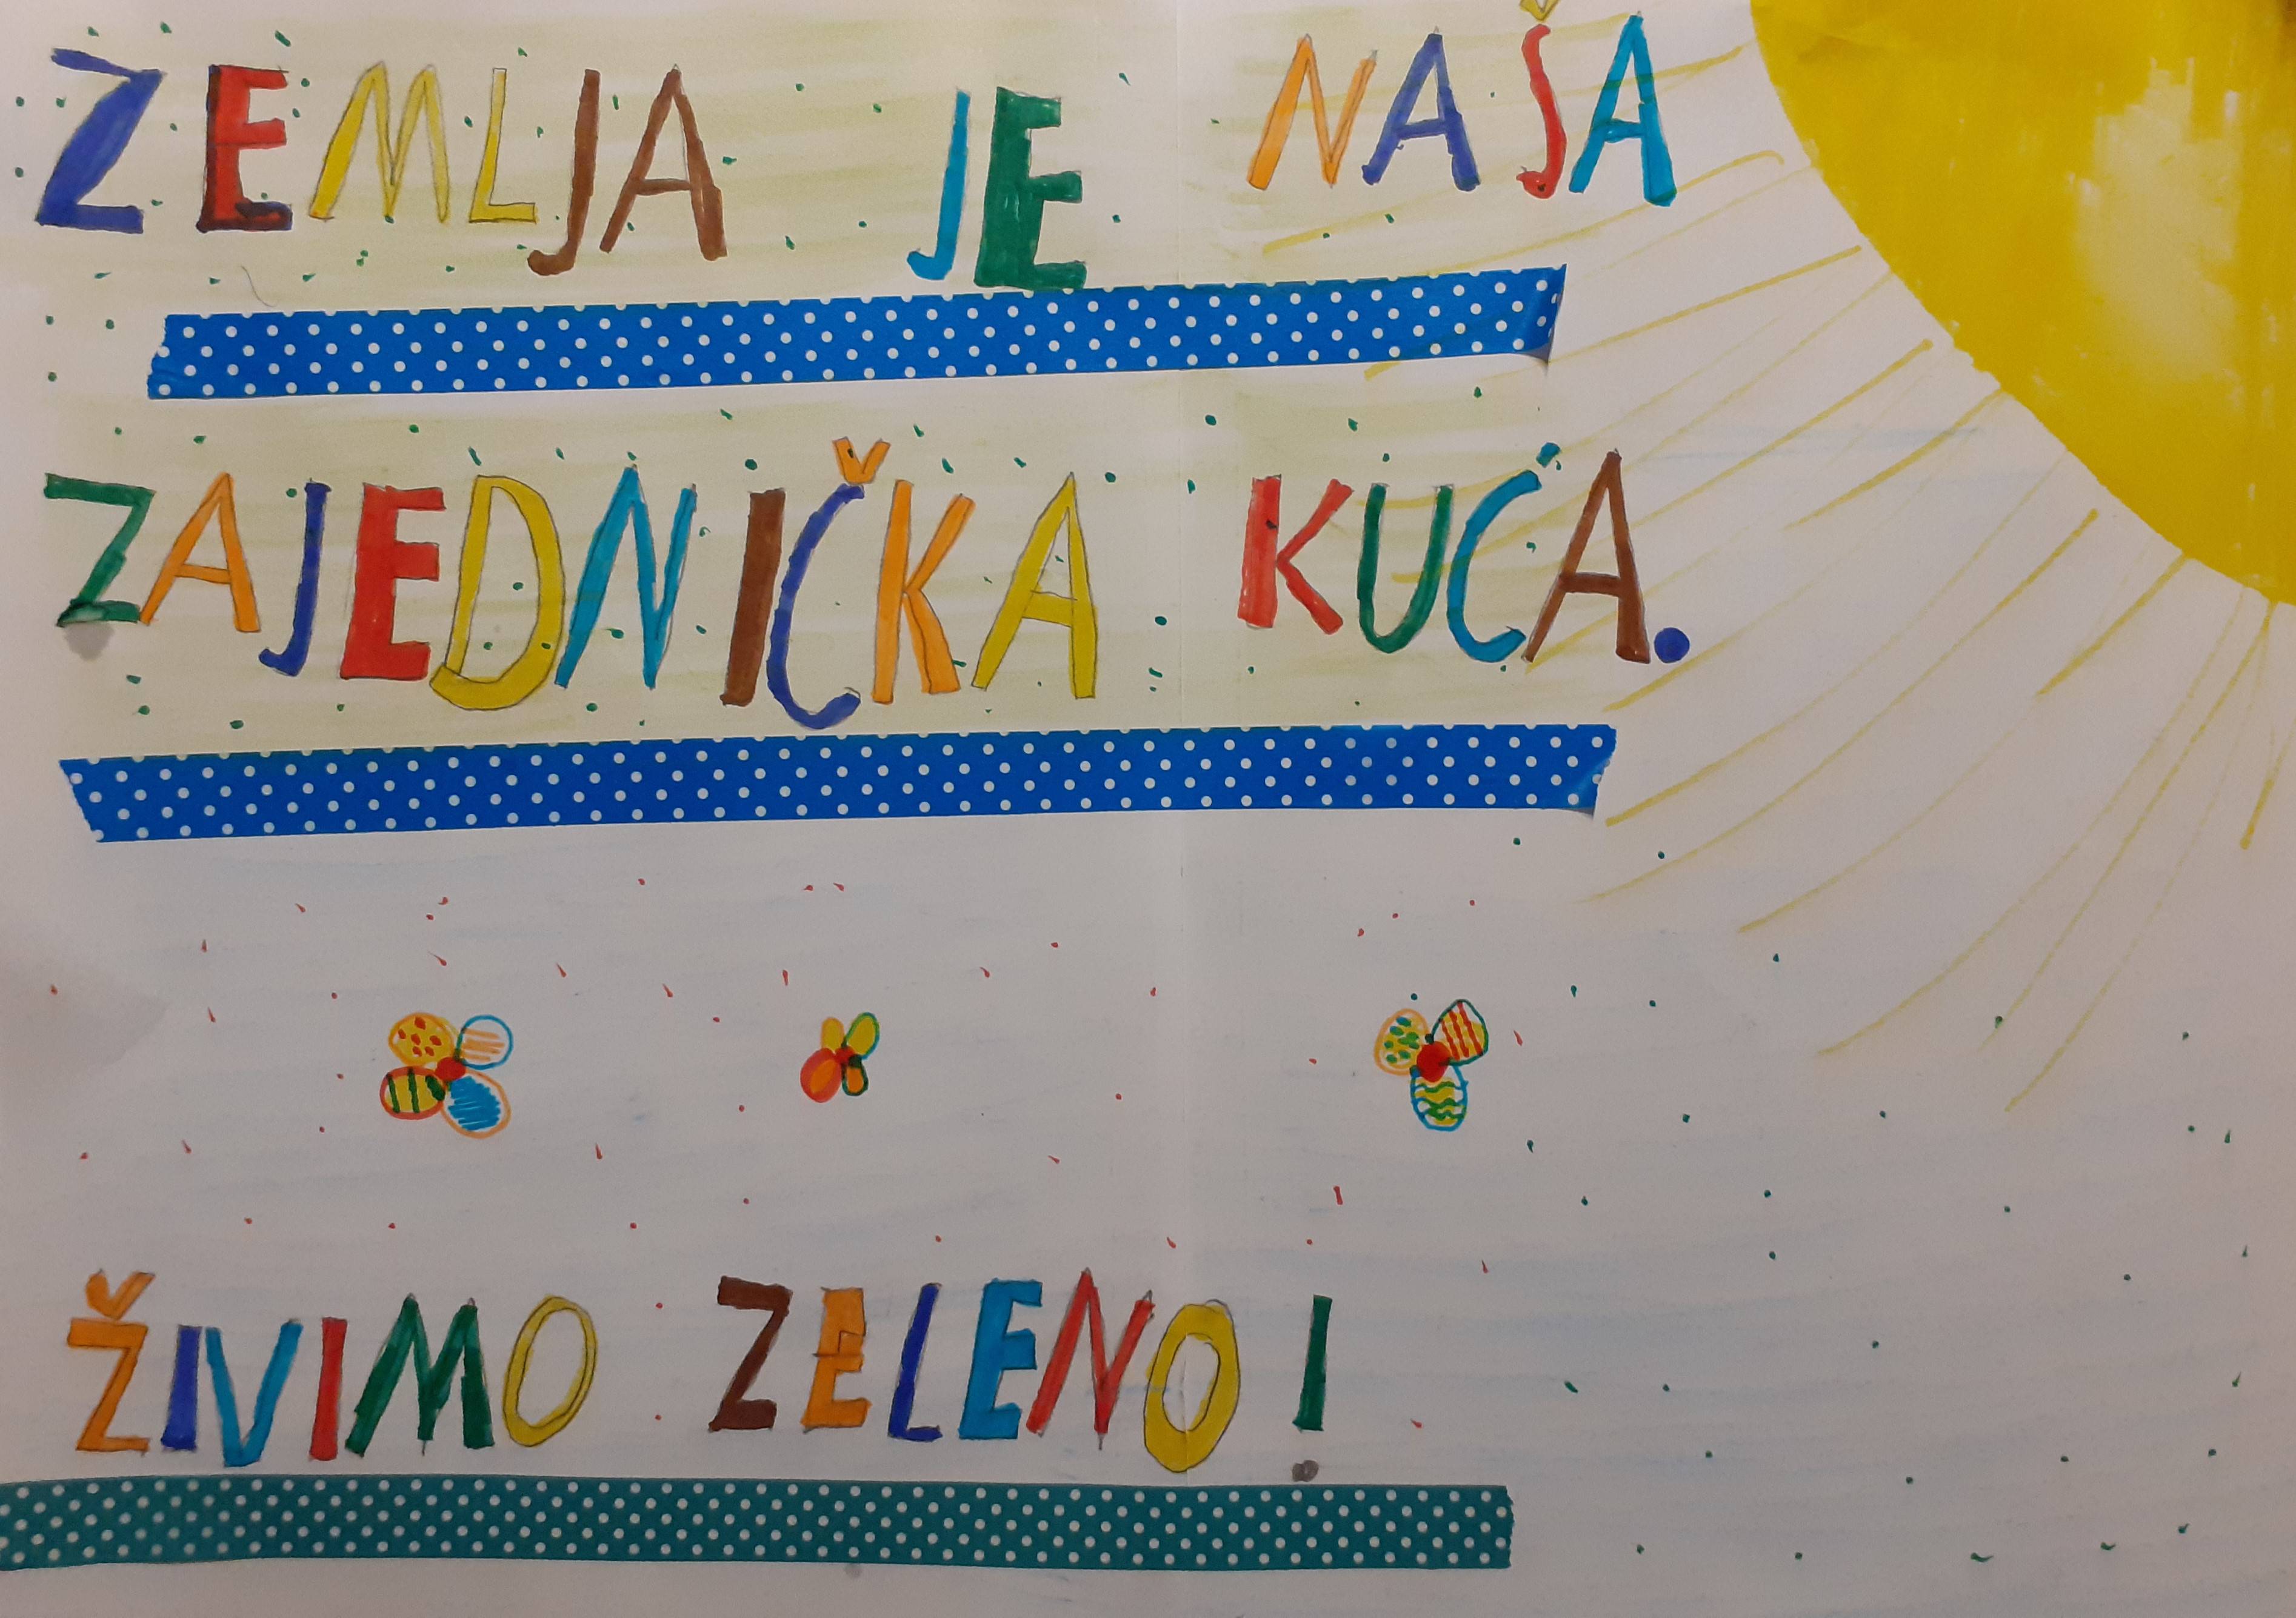 ZEMLJA JE NAŠA
ZAJEDNIČKA KUĆA.
ŽIVIMO ZELENO!